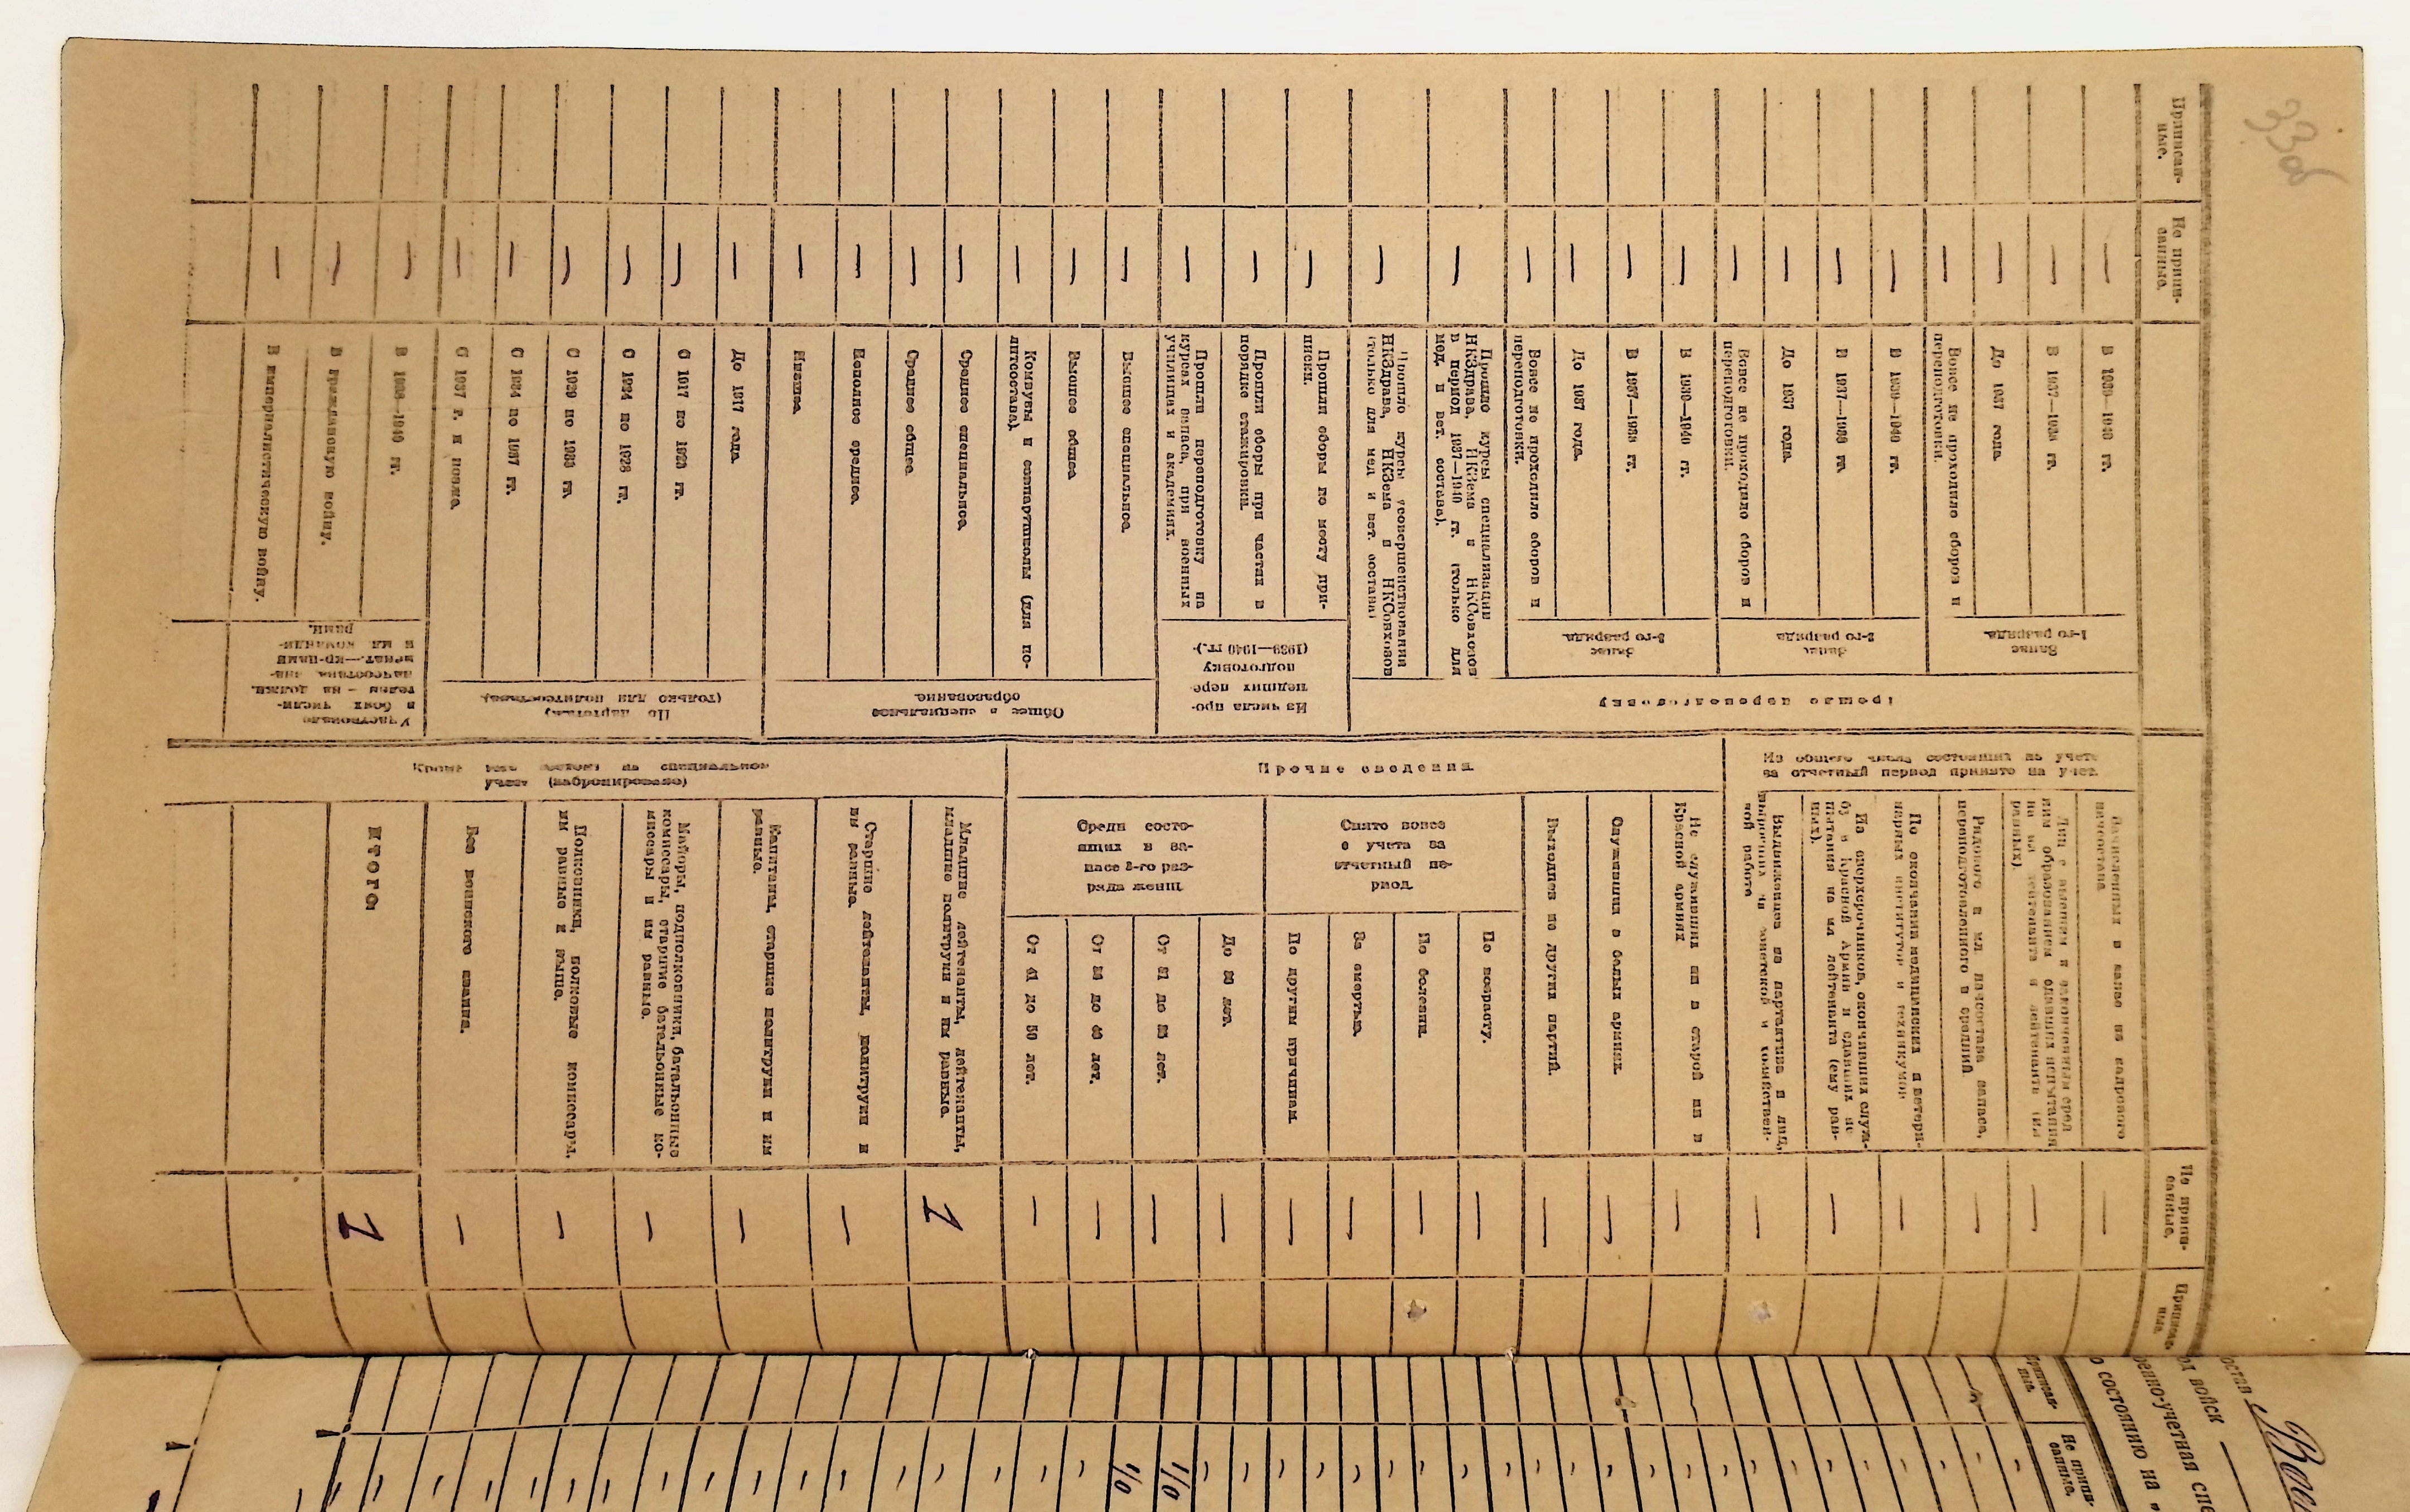 33об
Приписан-
ные.
Не припи-
санные.
Прошло переподготовку
Запас
1-го разряда
В 1939—1940 гг.
В 1937—1938 гг.
До 1937 года.
Вовсе не проходило сборов и
переподготовки.
Запас
2-го разряда
В 1939—1940 гг.
В 1937—1938 гг.
До 1937 года.
Вовсе не проходило сборов и
переподготовки.
Запас
3-го разряда
В 1939—1940 гг.
В 1937—1938 гг.
До 1937 года.
Вовсе не проходило сборов и
переподготовки.
Прошло курсы специализации
НКЗдрава, НКЗема и НКСовхозов
в период 1937—1940 гг. (только для
мед. и вет. состава).
Прошло курсы усовершенствования
НКЗдрава, НКЗема и НКСовхозов
(только для мед и вет. состава)
Из числа про-
шедших пере
подготовку
(1939—1940 гг.)
Прошли сборы по месту при-
писки.
Прошли сборы при частях в
порядке стажировки.
Прошли переподготовку на
курсах запаса, при военных
училищах и академиях.
Общее и специальное
образование.
Высшее специальное.
Высшее общее
Комвузы и совпартшколы (для по-
литсостава).
Среднее специальное.
Среднее общее.
Неполное среднее.
Низшее.
По партстажу
(только для политсостава)
До 1917 года.
С 1917 по 1923 гг.
С 1924 по 1928 гг.
С 1929 по 1933 гг.
С 1934 по 1937 гг.
С 1937 г. и позже.
Участвовало
в боях числи-
телем – на должн.
начсостава, зна-
менат.—кр-цами
и мл командн-
рами.
В 1938—1940 гг.
В гражданскую войну.
В империалистическую войну.
Не припи-
санные.
Приписан-
ные.
Из общего числа состоящих на учете
за отчетный период принято на учет.
Зачисленных в запас из кадрового
начсостава
Рядового и мл начсостава запаса,
переподготовленного в средний.
По окончании медицинских и ветери-
нарных институтов и техникумов
Из сверхсрочников, окончивших служ-
бу в Красной Армии и сдавших ис
пытания на мл лейтенанта (ему рав-
ных).
Прочие сведения
Не служивших ни в старой ни в
Красной армиях
Служивших в белых армиях.
Выходцев из других партий.
Снято вовсе
с учета за
отчетный пе-
риод.
По возрасту.
По болезни.
За смертью.
По другим причинам.
Среди состо-
ящих в за-
пасе 3-го раз-
ряда женщ.
До 30 лет.
От 31 до 35 лет.
От 36 до 40 лет.
От 41 до 50 лет.
Кроме того состоит на специальном
учете (забронировано)
Младшие лейтенанты, лейтенанты,
младшие политруки и им равные.
1
Старшие лейтенанты, политруки и
им равные.
Капитаны, старшие политруки и им
равные.
Майоры, подполковники, батальонные
комиссары, старшие батальонные ко-
миссары и им равные.
Полковники, полковые комиссары,
им равные и выше.
Без воинского звания.
ИТОГО
1
остав
од войск —
военно-учетная спе
о состоянию на «
Приписан-
ные.
Не припи-
санные.
1/0
1/0